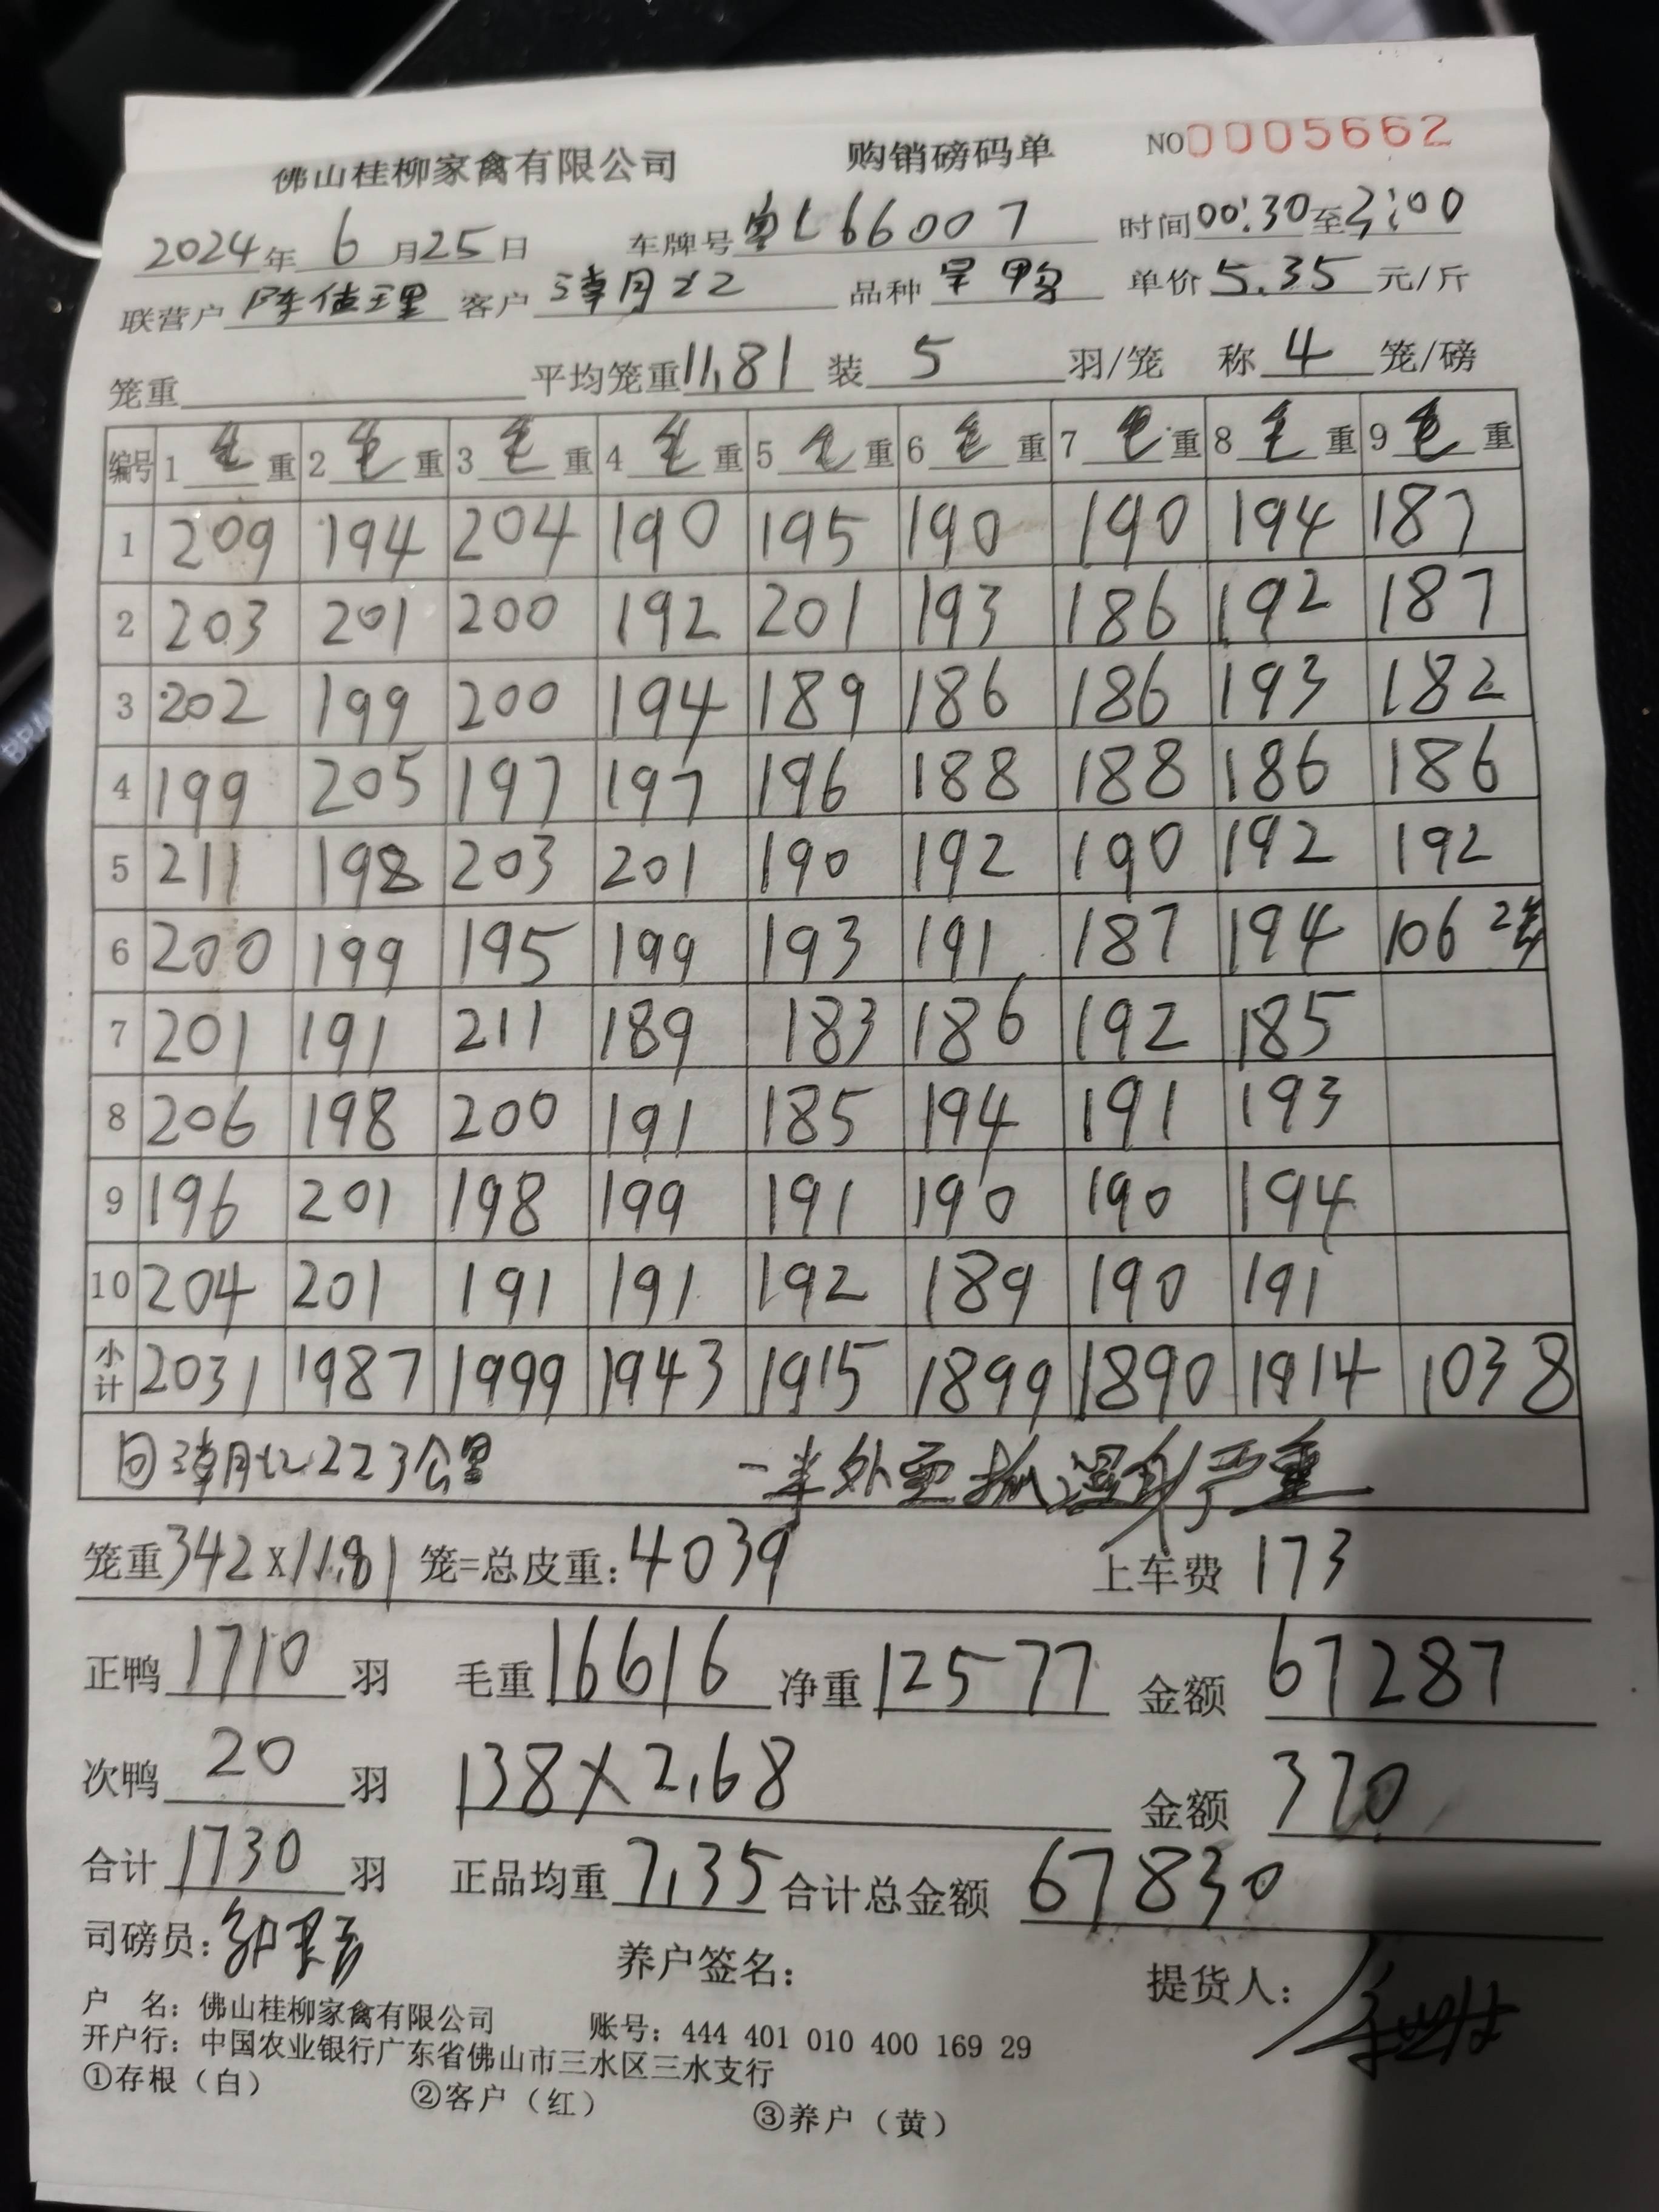 佛山桂柳家禽有限公司 购销磅码单 NO0005662
2024年6月25日 车牌号粤L66007 时间00:30至3:00
联营户 陈佳理 客户 品种 旱鸭 单价5.35元/斤
笼重 平均笼重11.81 装5羽/笼 称4笼/磅
编号 1毛重 2毛重 3毛重 4毛重 5毛重 6毛重 7毛重 8毛重 9毛重
1 209 194 204 190 195 190 190 194 187
2 203 201 200 192 201 193 186 192 187
3 202 199 200 194 189 186 186 193 182
4 199 205 197 197 196 188 188 186 186
5 211 198 203 201 190 192 190 192 192
6 200 199 195 199 193 191 187 194 106 2笼
7 201 191 211 189 183 186 192 185
8 206 198 200 191 185 194 191 193
9 196 201 198 199 191 190 190 194
10 204 201 191 191 192 189 190 191
小计 2031 1987 1999 1943 1915 1899 1890 1914 1038
回 223公里 一半外 湿身严重
笼重342x11.81笼=总皮重:4039 上车费 173
正鸭1710羽 毛重16616净重12577 金额 67287
次鸭20羽 138×2.68 金额 370
合计1730羽 正品均重7.35合计总金额67830
司磅员: 养户签名: 提货人:
户 名:佛山桂柳家禽有限公司 账号:444 401 010 400 169 29
开户行:中国农业银行广东省佛山市三水区三水支行
①存根(白) ②客户(红) ③养户(黄)